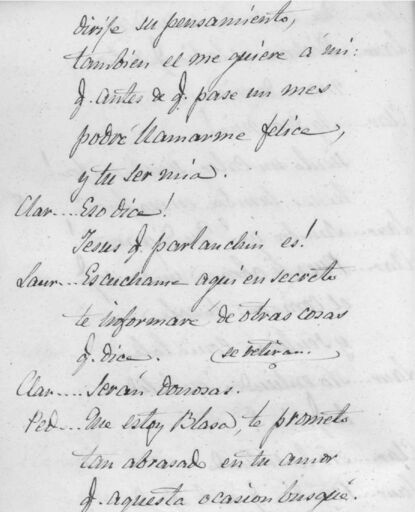 dirije su pensamiento,
tambien el me quiere á mi:
q. antes de q. pase un mes
podré llamarme felice,
y tu ser mia.
Clar.... Eso dice!
Jesus q. parlanchin es!
Laur... Escuchame aqui en secreto
te informaré de otras cosas
q. dice. (se retiran.
Clar.... Serán donosas.
Ped... Que estoy Blasa, te prometo
tan abrasado en tu amor
q. aquesta ocasion busqué.